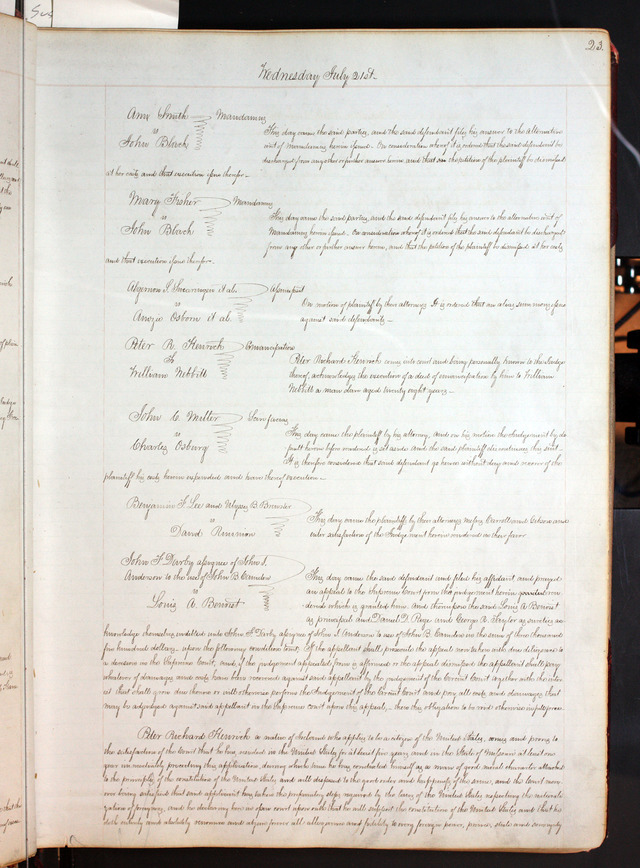 23.
Wednesday July 21st
Ann Smith Mandamus
vs
John Black
This day came the said parties, and the said defendant files his answer to the alternative
writ of Mandamus herein issued. On consideration whereof it is ordered that the said defendant be
discharged from any other or further answer herein, and that the petition of the plaintiff be dismissed
at her costs and that execution issue therefor.
Mary Fisher Mandamus
vs
John Black
This day came the said parties, and the said defendant files his answer to the alternative writ of
Mandamus herein issued. On consideration whereof it is ordered that the said defendant be discharged
from any other or further answer herein, and that the petition of the plaintiff be dismissed at her costs
and that execution issue therefor.
et al. Assumpsit
vs
Osborn et al.
On motion of plaintiff by their attorney It is ordered that an alias summons issue
against said defendants
Peter R. Kenrick Emancipation
To
William Nebbitt
Peter Richard Kenrick comes into court and being personally known to the Judge
thereof, acknowledges the execution of a deed of emancipation by him to William
Nebbitt a man slave aged twenty eight years
John C. Miller
vs
Charles Osburg
This day came the plaintiff by his attorney, and on his motion the Judgement by de
fault herein before rendered is set aside and the said plaintiff discontinues this suit.
It is therefore considered that said defendant go hence without day and recover of the
plaintiff his costs herein expended and have thereof execution
Benjamin F. Lee and Ulysses B. Brewster
vs
David
This day came the plaintiffs by their attorneys and
enter satisfaction of the Judgement herein rendered in their favor
John F. Darby assignee of John J.
Anderson to the use of John B. Camden
vs
Louis A. Benoist
This day came the said defendant and filed his affidavit and prayed
an appeal to the Supreme Court from the judgement herein ren
dered which is granted him. And thereupon the said Louis A. Benoist
as principal and Daniel D. Page and George R. Taylor as sureties ac
knowledge themselves indebted unto John F. Darby assignee of John J. Anderson to use of John B. Camden in the sum of three thousand
five hundred dollars, upon the following condition to wit; If the appellant shall prosecute the appeal now taken with due diligence to
a decision in the Supreme Court, and if the judgement appealed from is affirmed or the appeal dismissed the appellant shall pay
whatever of damages and costs have been recovered against said appellant by the judgement of the Circuit Court together with the inter
est that shall grow due thereon or will otherwise perform the Judgement of the Circuit Court and pay all costs and damages that
may be adjudged against said appellant in the Supreme Court upon this appeal, then this obligation to be void otherwise in full force.
Peter Richard Kenrick a native of Ireland who applies to be a citizen of the United States, comes and proves to
the satisfaction of the Court that he has resided in the United States for at least five years, and in the State of Missouri at least one
year immediately preceding this application, during which time he has conducted himself as a man of good moral character attached
to the principles of the constitution of the United States and well disposed to the good order and happiness of the same, and the Court more
over being satisfied that said applicant has taken the preparatory steps required by the laws of the United States respecting the naturali
zation of foreigners, and he declaring here in open court upon oath that he will support the constitution of the United States and that he
doth entirely and absolutely renounce and abjure forever all allegiance and fidelity to every foreign power, prince, state and sovereignty